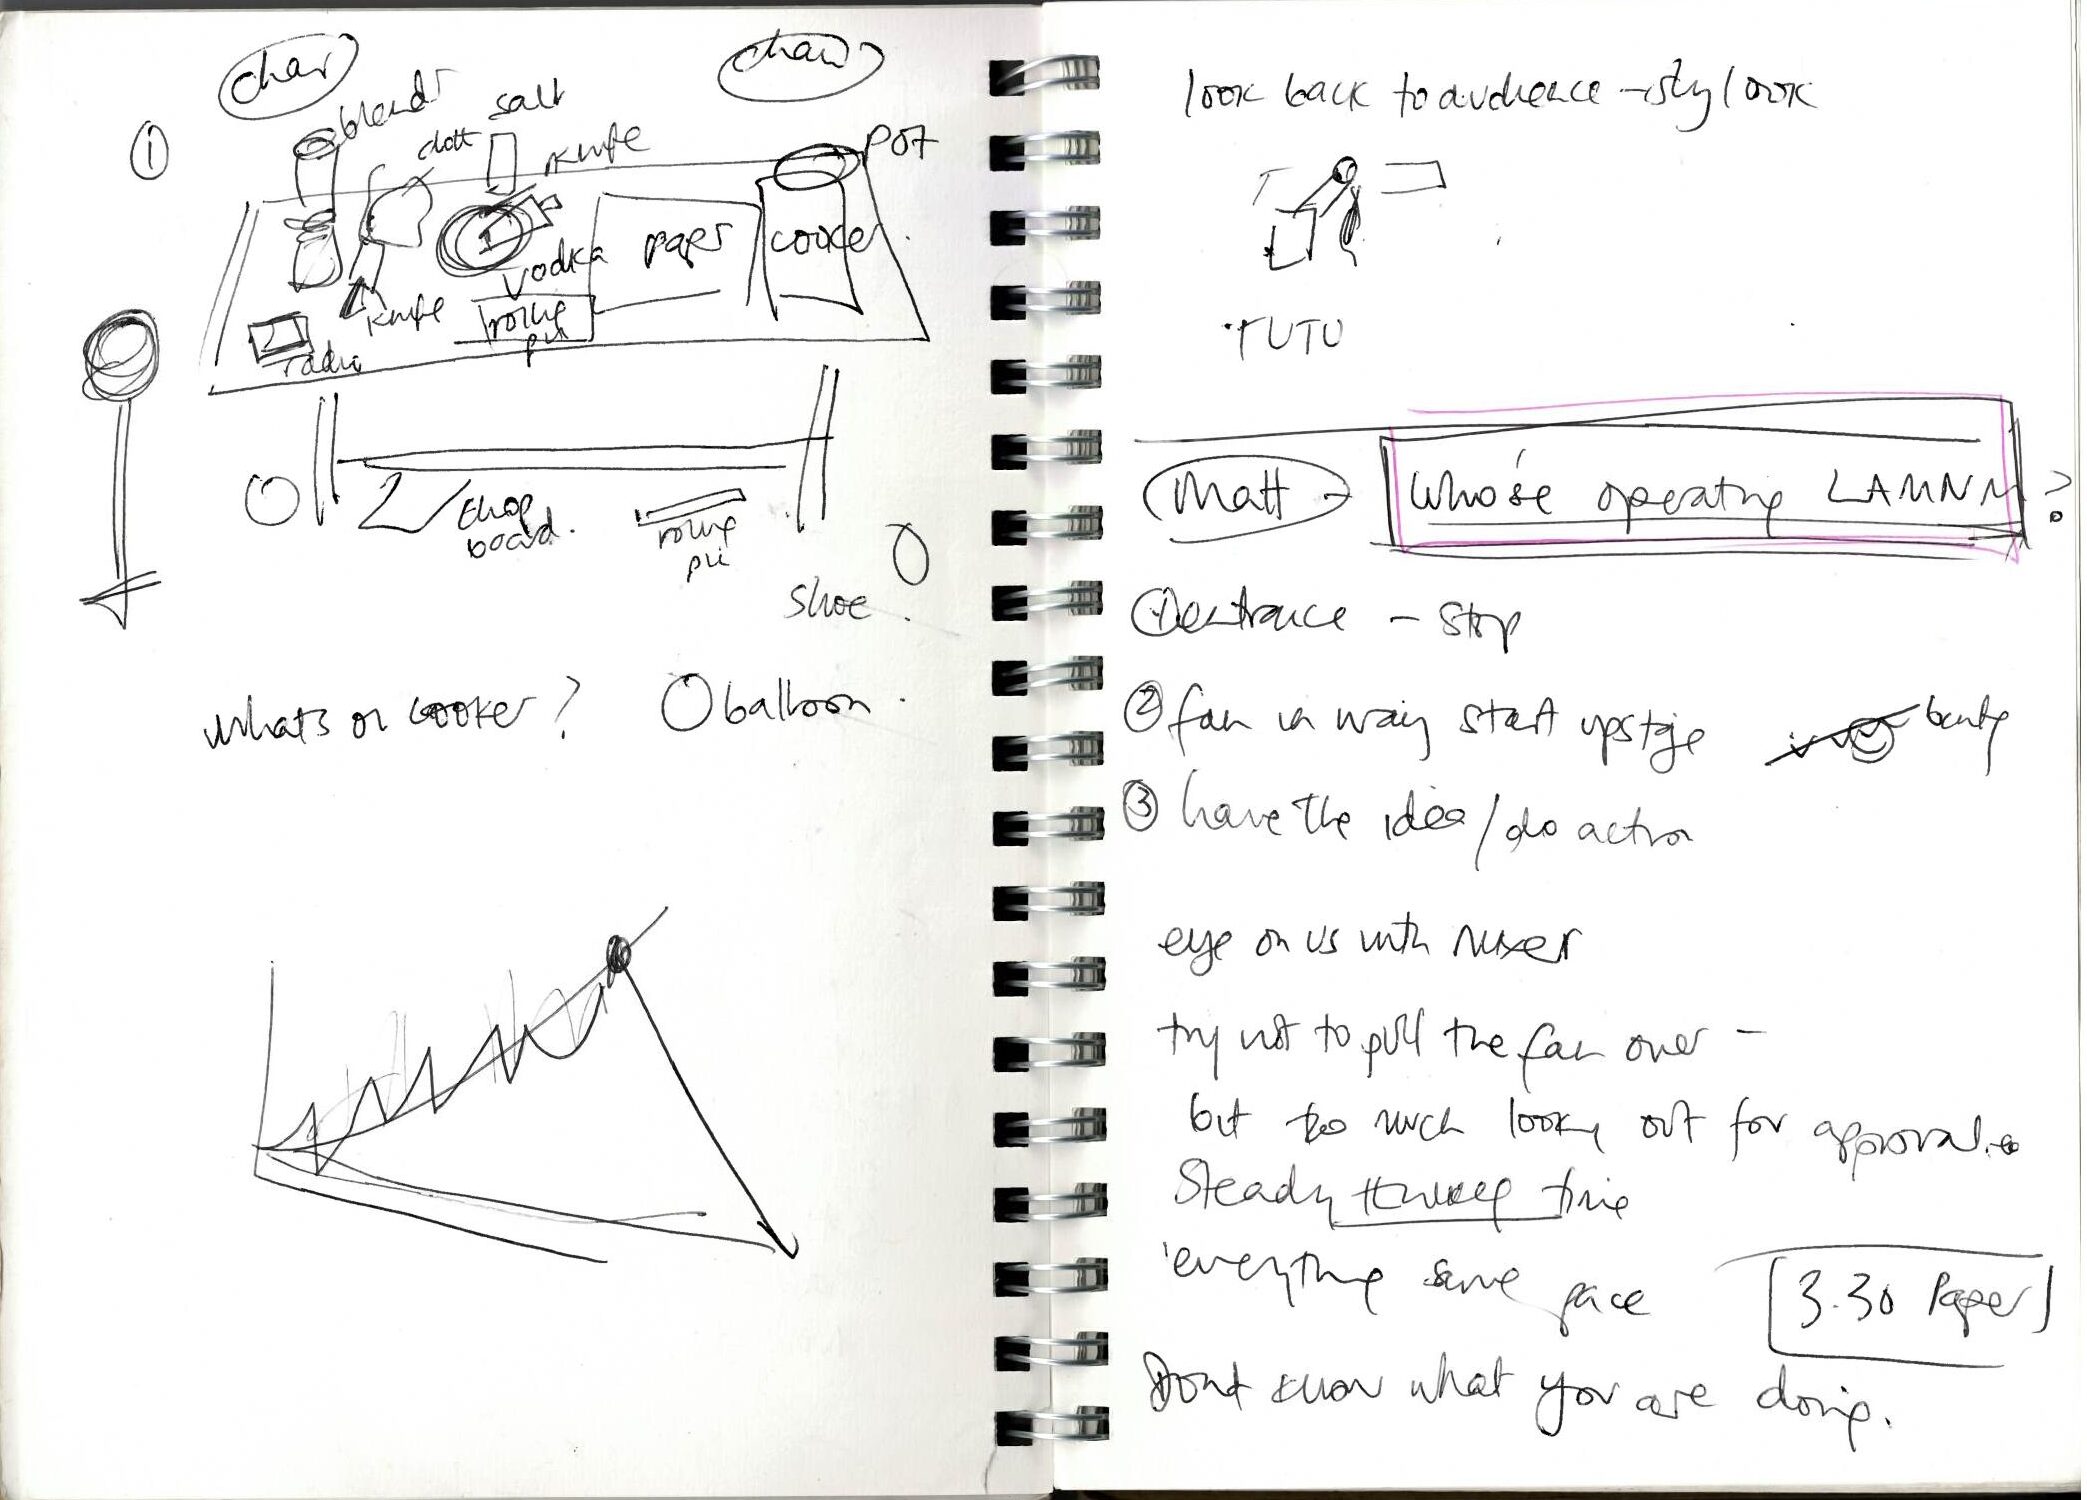 chair
chair
①
blender
salt
cloth
knife
pot
vodka
paper
cooker
knife
rolling pin
radio
chop board.
rolling pin
shoe.
whats on cooker?
balloon.
look back to audience - sly look
TUTU
Matt
Who's operating
?
① entrance - stop
② fan in way start upstage
③ have the idea / do action
eye on us with mixer
try not to pull the fan over -
but too much looking out for approval.
Steady time
everything same pace
3.30 Paper
Dont know what you are doing.